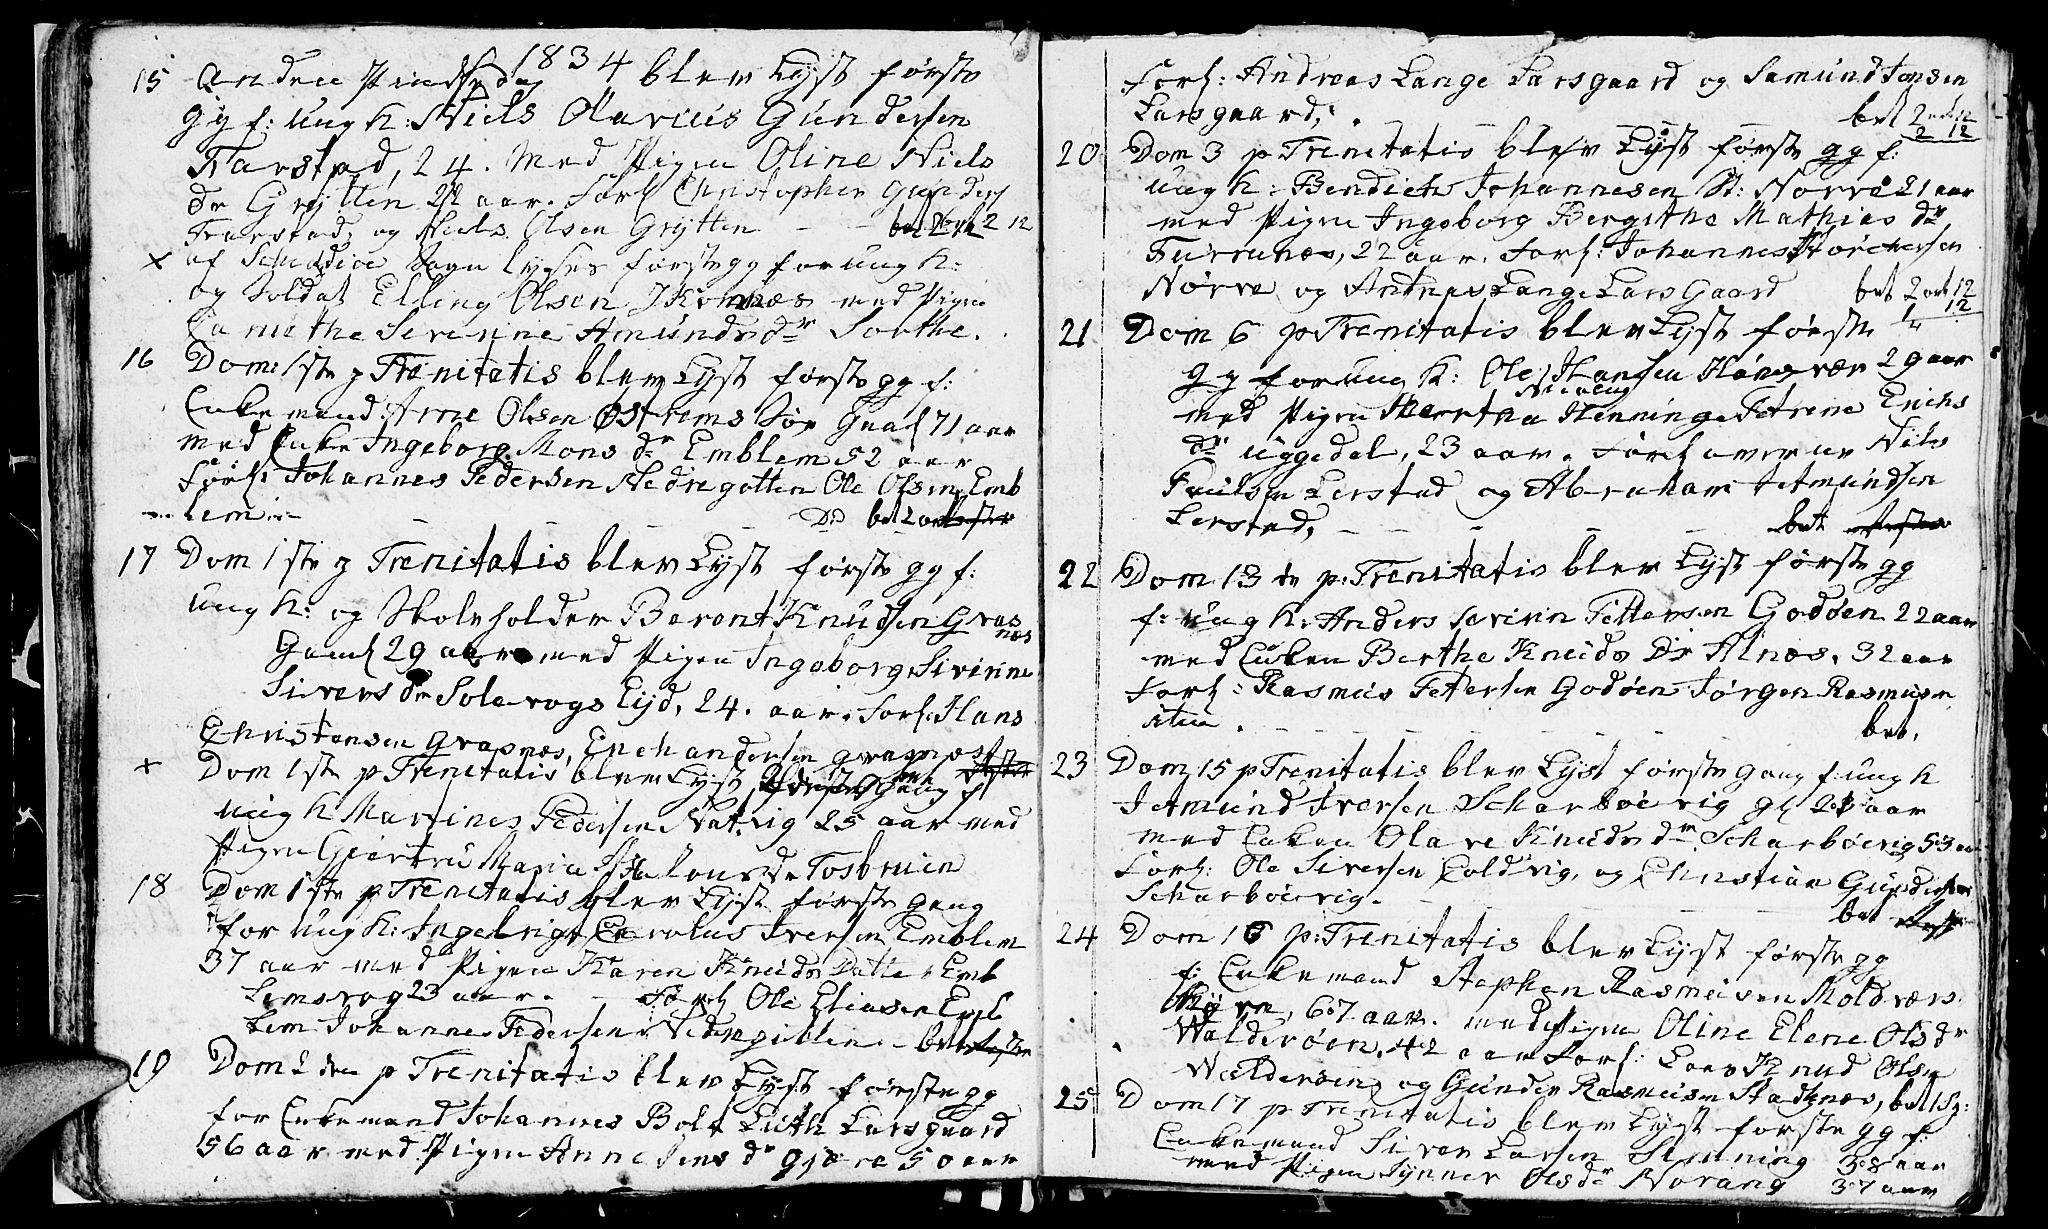 1834
15 Anden Pindsedag blev Lyst første
gg f: ung k: Niels Olarius Gundersen
Farstad, 24. med Pigen Oline Niels
dr Grytten 22 aar. Forl Christopher Gunders
Farstad, og Niels Olsen Grytten - - bet 2 ort 12
x af Sogn lyses første gg for ung k:
og Soldat Elling Olsen med Pigen
Severine Amunds dr Sorthe.
16 Dom: 1ste p Trenitatis blev Lyst første gg f:
Enkemand Arne Olsen Østrems Gaml 71 aar
med Enken Ingeborg Mons dr Emblem 52 aar
Forl: Johannes Pedersen Nedregotten Ole Olsen Emb
lem - - bet 2 ort
17 Dom 1ste p Trenitatis blev Lyst første gg f:
ung k: og Skoleholder Berent Knudsen Gras
næs
Gaml 29 aar med Pigen Ingeborg Sivirine
Sivers dr Solevogs Eijd, 24. aar. Forl: Hans
Christensen Grasnæs, Erich andersen grasnæs
x Dom 1ste p Trenitatis blev Lyst første Gang f
ung k Martines Pedersen 25 aar med
Pigen Giertru Maria dr Tosbruin
18 Dom 1ste p Trenitatis blev Lyst første gang
for ung k: Ingebrigt Carolus Iversen Emblem
37 aar med Pigen Karen Knuds Datter Emb
lemsvog 23 aar. - Forl Ole Eliasen Emb
lem Johannes Pedersen - bet
19 Dom 2den p Trenitatis blev Lyst første gg
for Enkemand Johannes Bolt Luth Larsgaard
56 aar med Pigen Anne Jens dr Gjære 50 aar
Forl: Andreas Lange Larsgaard og Samund Jonsen
Larsgaard, . bet 2 ort 12
2 12
20 Dom 3 p Trenitatis blev Lyst første gg f:
ung k: Bendich Johannesen St: Nørve 21 aar
med Pigen Ingeborg Bergithe Mathias dr
Furrenæs, 22 aar. Forl: Johannes
Nørve og Andreas Lange Lars Gaard bet 2 ort 12
12
21 Dom 6 p Trenitatis blev Lyst første
gg for ung k: Ole Hansen 29 aar
med Pigen Henninge Petrine Erichs
dr uggedal, 23 aar. Forl Niels
Lerstad og Abraham Aamundsen
Lerstad, - - - - bet
22 Dom 13 de p: Trenitatis blev Lyst første gg
f: ung k: Anders Sevirin Pettersen Godøen 22 aar
med Enken Berthe Knuds Dr Alnæs, 32 aar
Forl: Rasmus Petersen Godøen Jørgen Rasmusen
- - - bet.
23 Dom 15 p Trenitatis blev Lyst første gang f: ung k
Aamund Iversen Scharbøevig gl 28 aar
med Enken Olave Knuds dr Scharbøevig 53 aar
Forl: Ole Siversen Coldvig, og Christian Gundersen
Scharbøevig. - - - bet
24 Dom 16 p: Trenitatis blev Lyst første gg
f: Enkemand Stephen Rasmusen Moldværs
67 aar. med Pigen Oline Elene Ols dr
Walderøen, 42 aar Forl: Lars Knud Olsen
Walderøen og Gunder Rasmusen Stadsnæs, bet
25 Dom 17 p Trenitatis blev Lyst første gg f:
Enkemand Siver Larsen 38 aar
med Pigen Synnev Ols dr Norang 37 aar